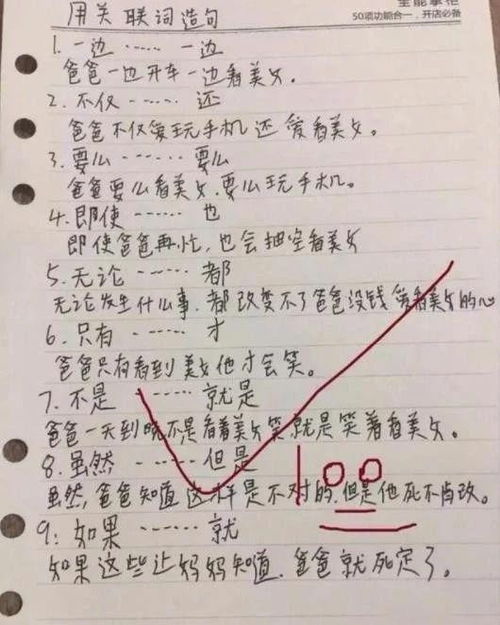 全能掌柜
50项功能合一，开店必备
用关联词造句
1. 一边 …… 一边
爸爸一边开车一边看美女。
2. 不仅 …… 还
爸爸不仅爱玩手机还爱看美女。
3. 要么 …… 要么
爸爸要么看美女，要么玩手机。
4. 即使 …… 也
即使爸爸再忙，也会抽空看美女
5. 无论 …… 都
无论发生什么事，都改变不了爸爸没钱爱看美女的心
6. 只有 …… 才
爸爸只有看到美女他才会笑。
7. 不是 …… 就是
爸爸一天到晚不是看着美女笑就是笑着看美女。
8. 虽然 …… 但是
虽然，爸爸知道这样是不对的，但是他死不肯改。
100
9: 如果 …… 就
如果这些让妈妈知道，爸爸就死定了。